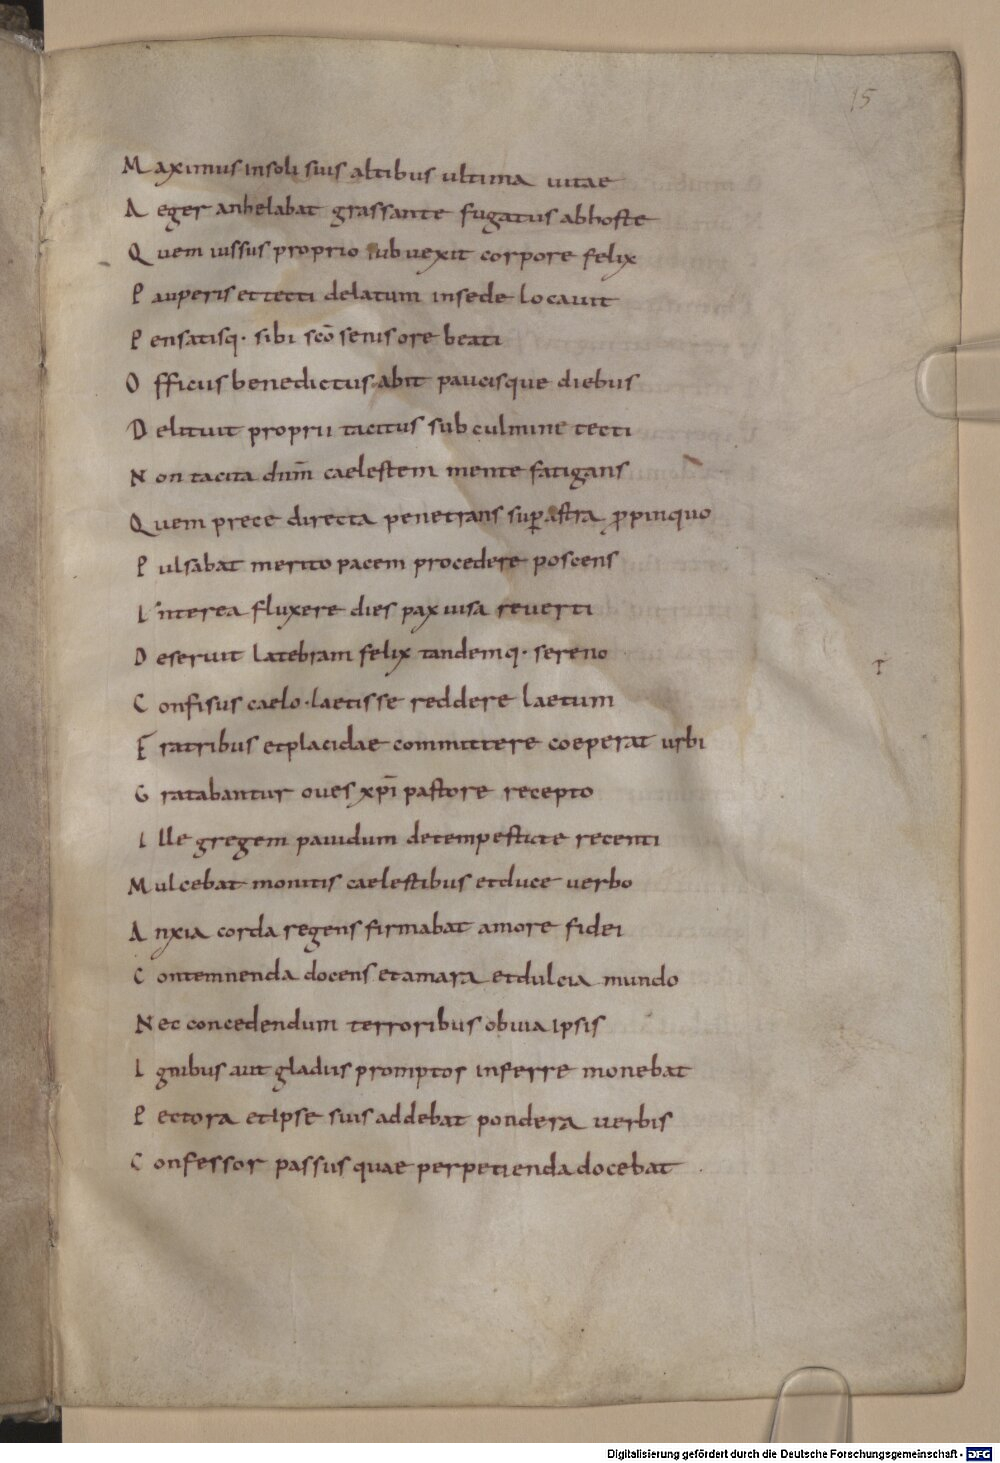 15
Maximus insoli suis altibus ultima uitae
Aeger anhelabat grassante fugatus abhoste
Quem iussus proprio subuexit corpore felix
Pauperis et tecti delatum insede locauit
Pensatisq· sibi scō senis ore beati
Officus benedictus abit paucisque diebus
Delituit proprii tacitus sub culmine tecti
Non tacita dnm̄ caelestem mente fatigans
Quem prece directa penetrans sup̱ astra p̱pinquo
Pulsabat merito pacem procedere poscens
Interea fluxere dies pax uisa reuerti
Deseruit latebram felix tandemq· sereno
Confisus caelo· laetis se reddere laetum
Fratribus et placidae committere coeperat urbi
Gratabantur oues xpī pastore recepto
Ille gregem pauidum detempestate recenti
Mulcebat monitis caelestibus etduce uerbo
Anxia corda regens firmabat amore fidei
Contemnenda docens et amara etdulcia mundo
Nec concedendum terroribus obuia ipsis
Ignibus aut gladiis promptor inferre monebat
Pectora et ipse suis addebat pondera uerbis
Confessor passus quae perpetienda docebat
r
Digitalisierung gefördert durch die Deutsche Forschungsgemeinschaft - DFG